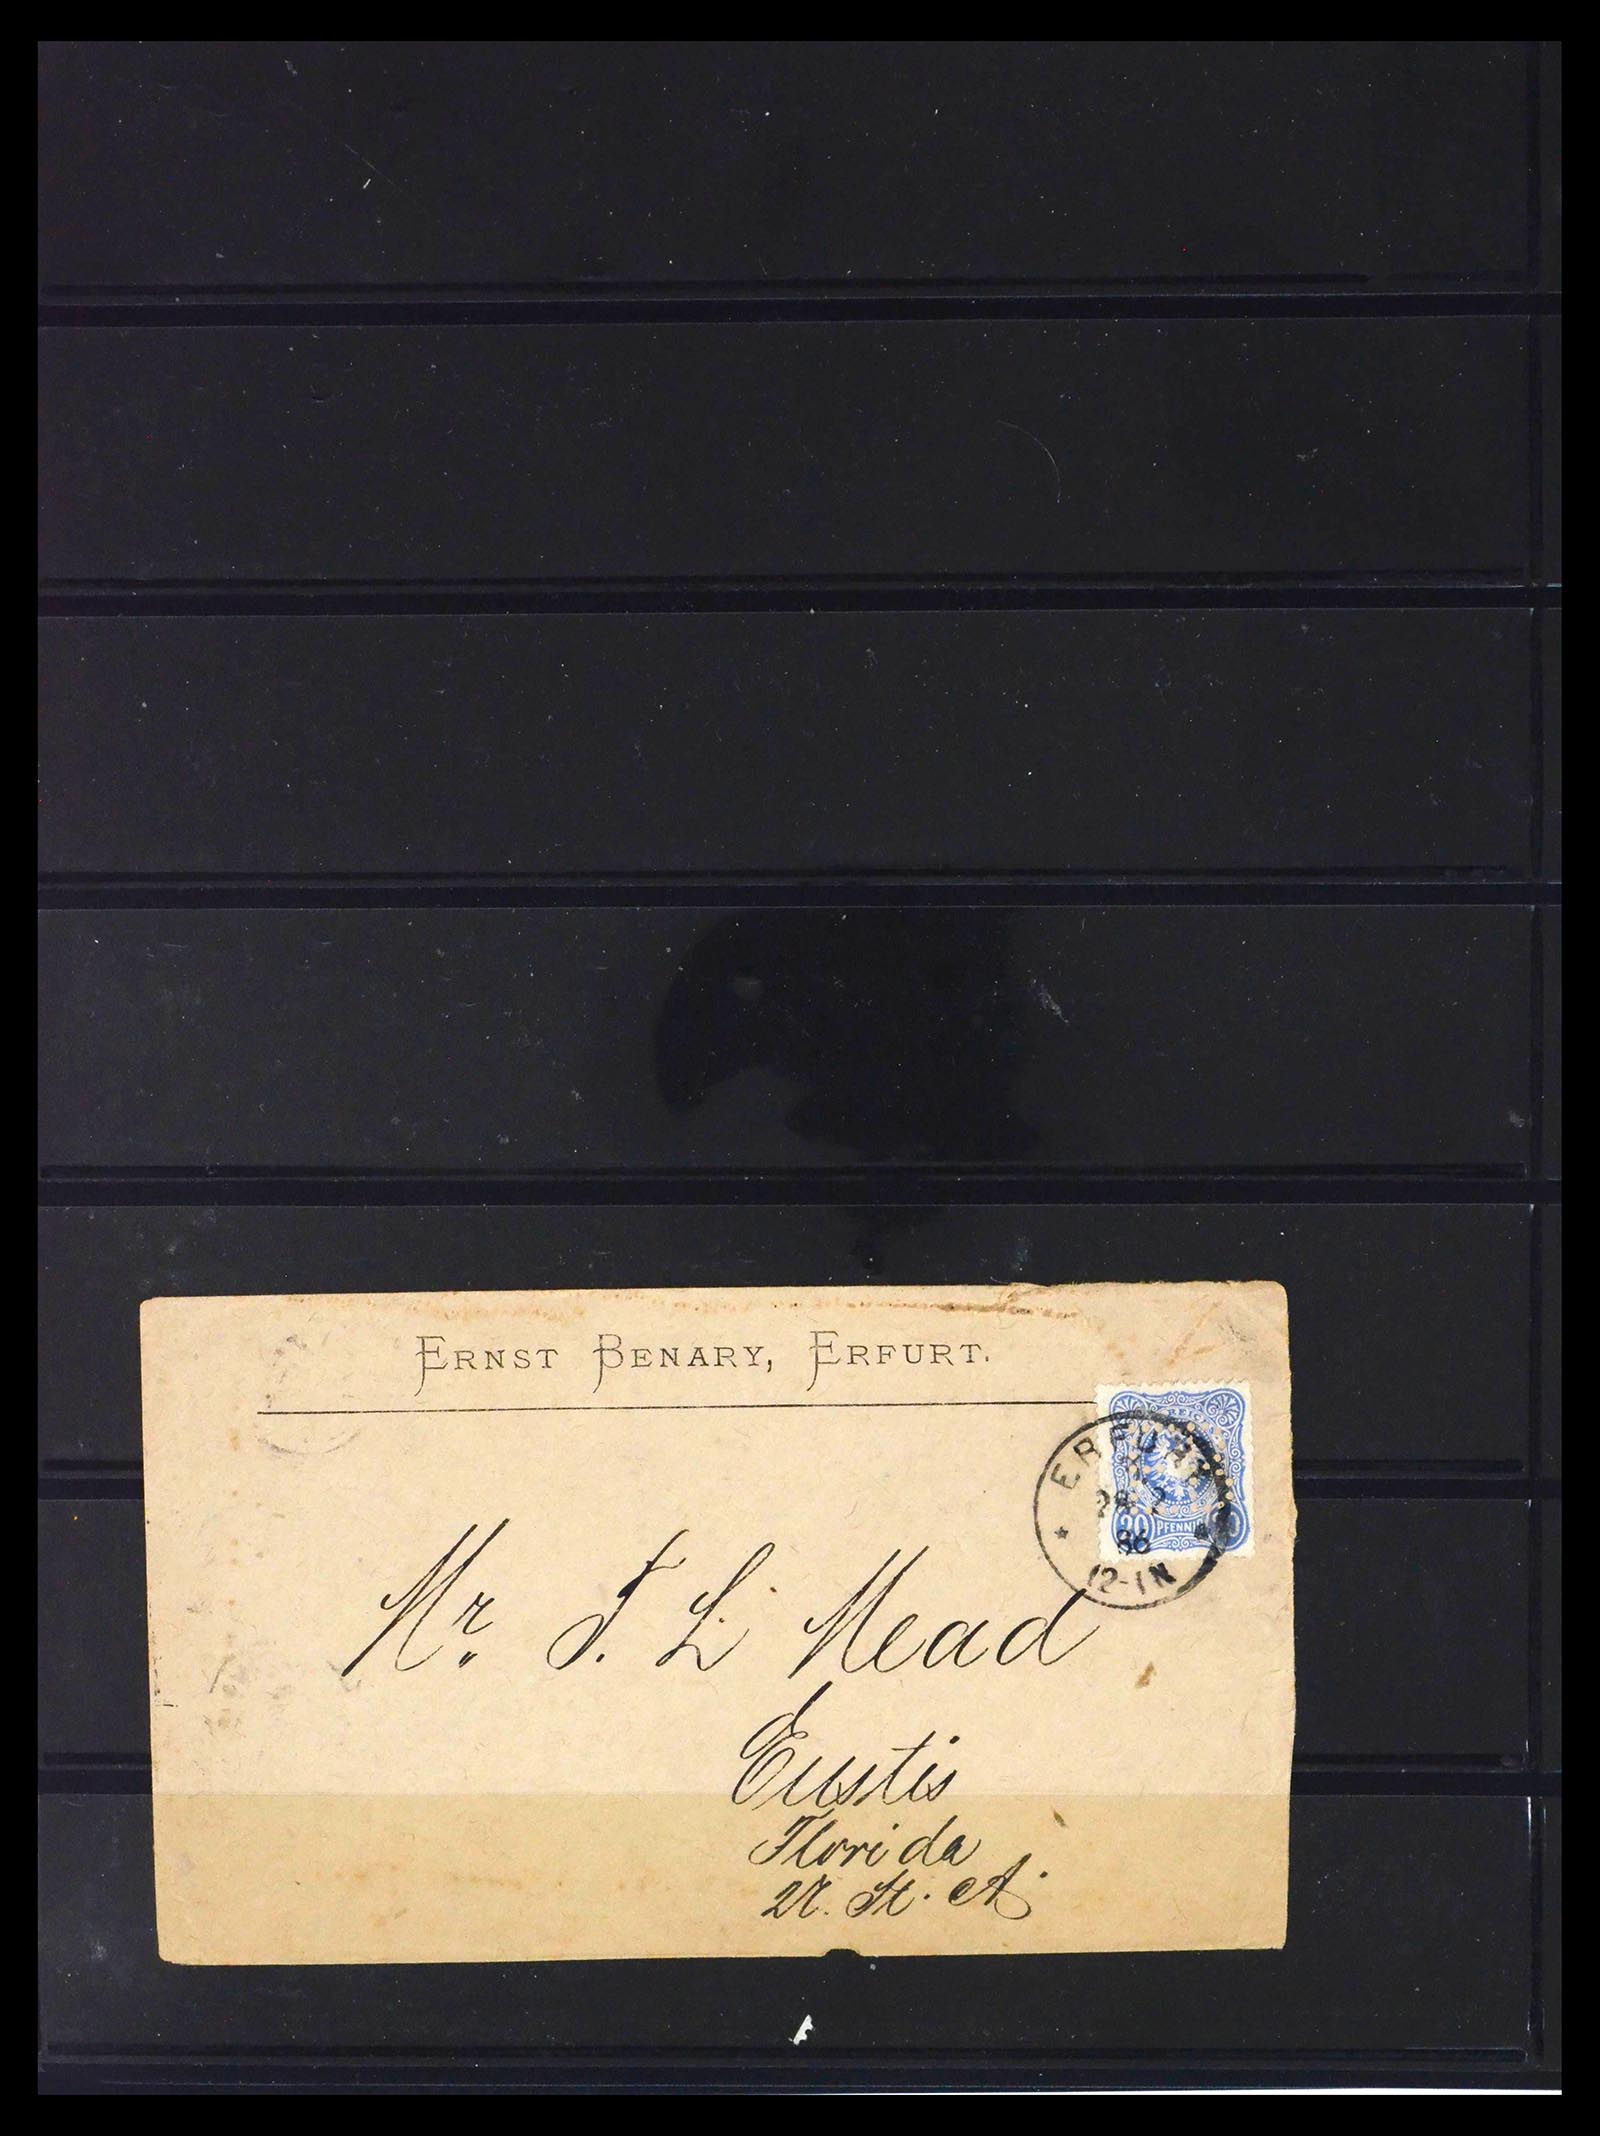 ERNST BENARY, ERFURT.
REICHS
ERFURT
28 2
86
12-1N
20 PFENNIG 20
Mr. T. L. Mead
Eustis
Florida
U. St. A.